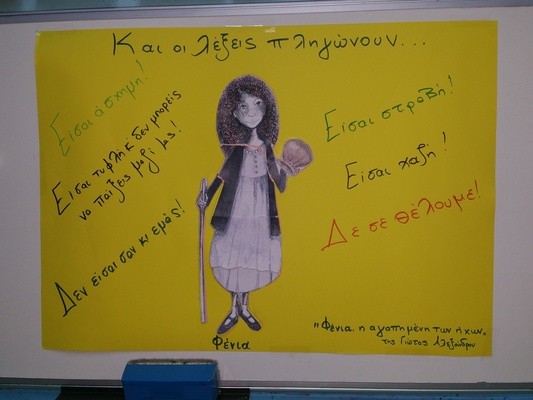 Και οι λέξεις πληγώνουν...
Είσαι άσχημη!
Είσαι τυφλή κ δεν μπορείς
να παίξεις μαζί μας!
Δεν είσαι σαν κι εμάς!
Είσαι στραβή!
Είσαι χαζή!
Δε σε θέλουμε!
Φένια
"Φένια, η αγαπημένη των ήχων"
της Γιώτας Αλεξάνδρου